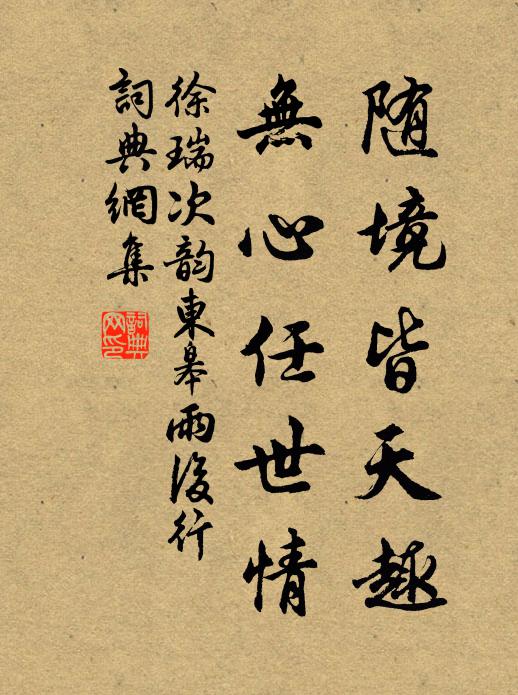 随境皆天趣
無心任世情
徐瑞次韵東皋雨後行
詞典網集
詞典网印